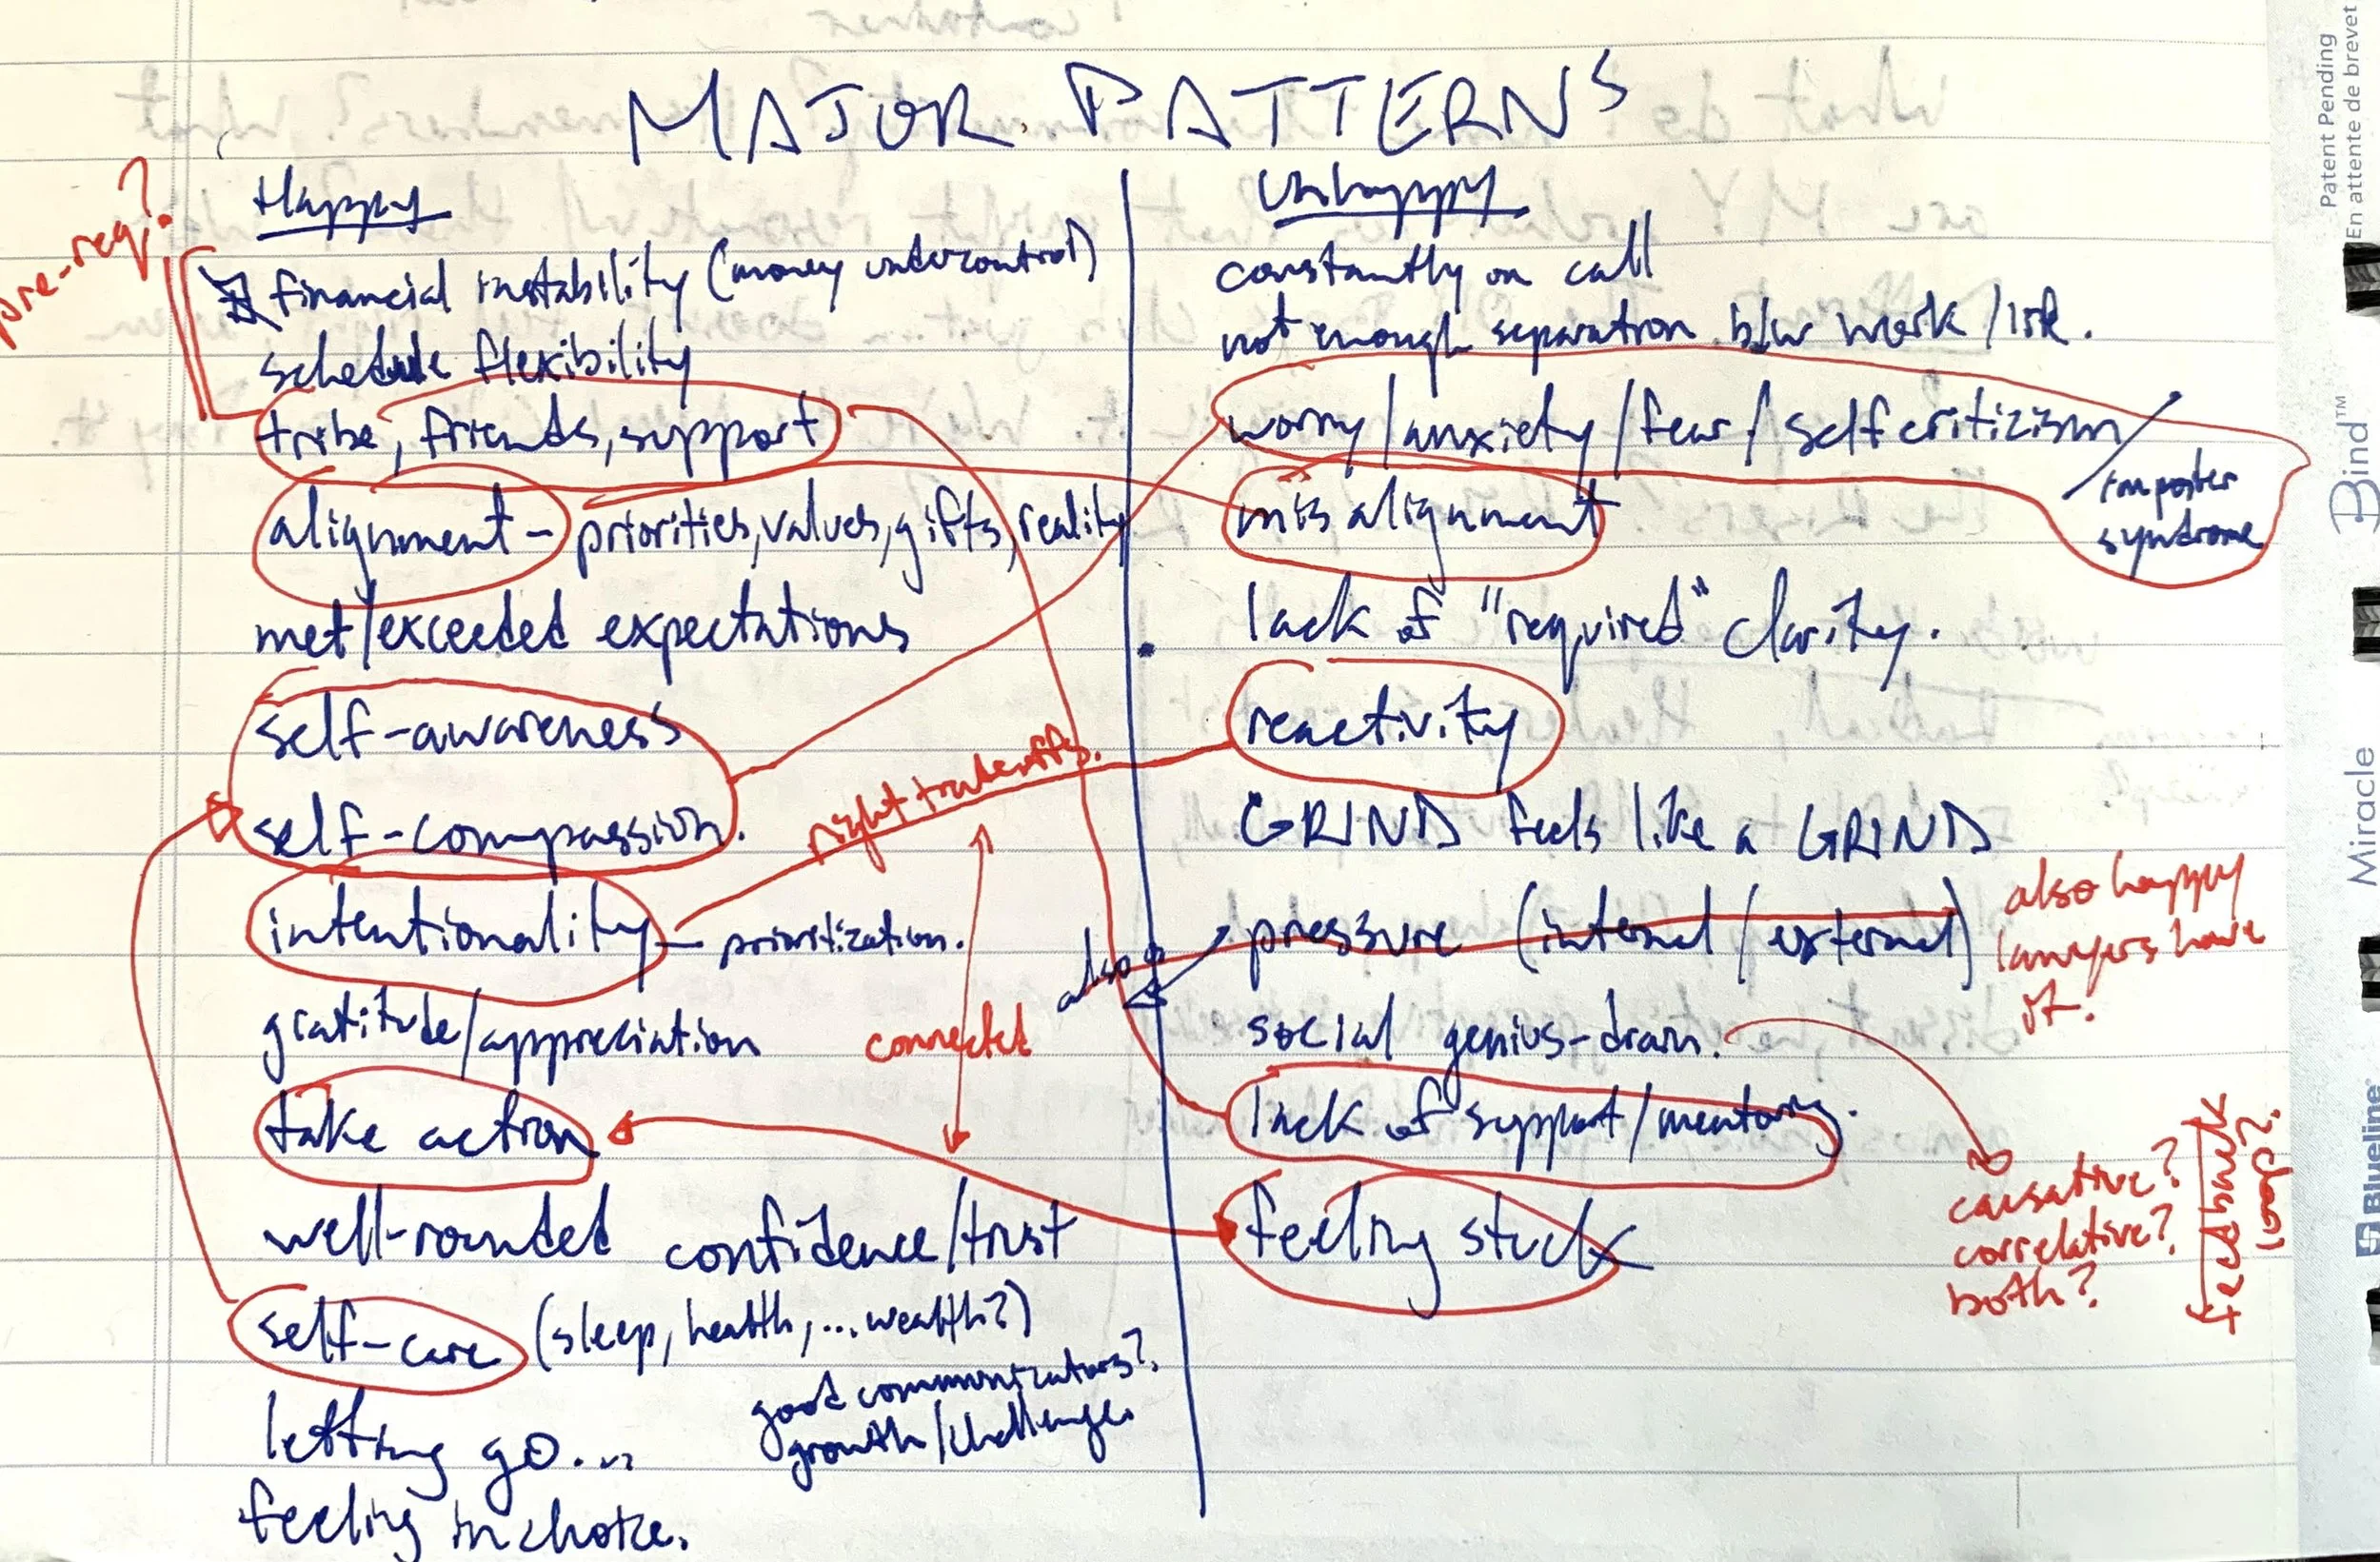 MAJOR PATTERNS
Happy
financial instability (money undercontrol)
schedule flexibility
tribe, friends, support
alignment - priorities, values, gifts, reality
met/exceeded expectations
self-awareness
self-compassion.
intentionality - prioritization.
gratitude/appreciation
take action
well-rounded confidence/trust
self-care (sleep, health, ... wealth?)
good communicators?
growth/challenge.
letting go...
feeling in choice.
pre-req?
right tradeoffs.
connected
also
Unhappy
constantly on call
not enough separation b/w work/life.
worry/anxiety/fear/self criticizism/
imposter
syndrome
misalignment
lack of "required" clarity.
reactivity
GRIND feels like a GRIND
pressure (internal/external)
also happy
lawyers have
it.
social genius-drain.
lack of support/mentoring.
feeling stuck
causative?
correlative?
both?
feedback
loop?
Patent Pending
En attente de brevet
Miracle Bind™
Blueline